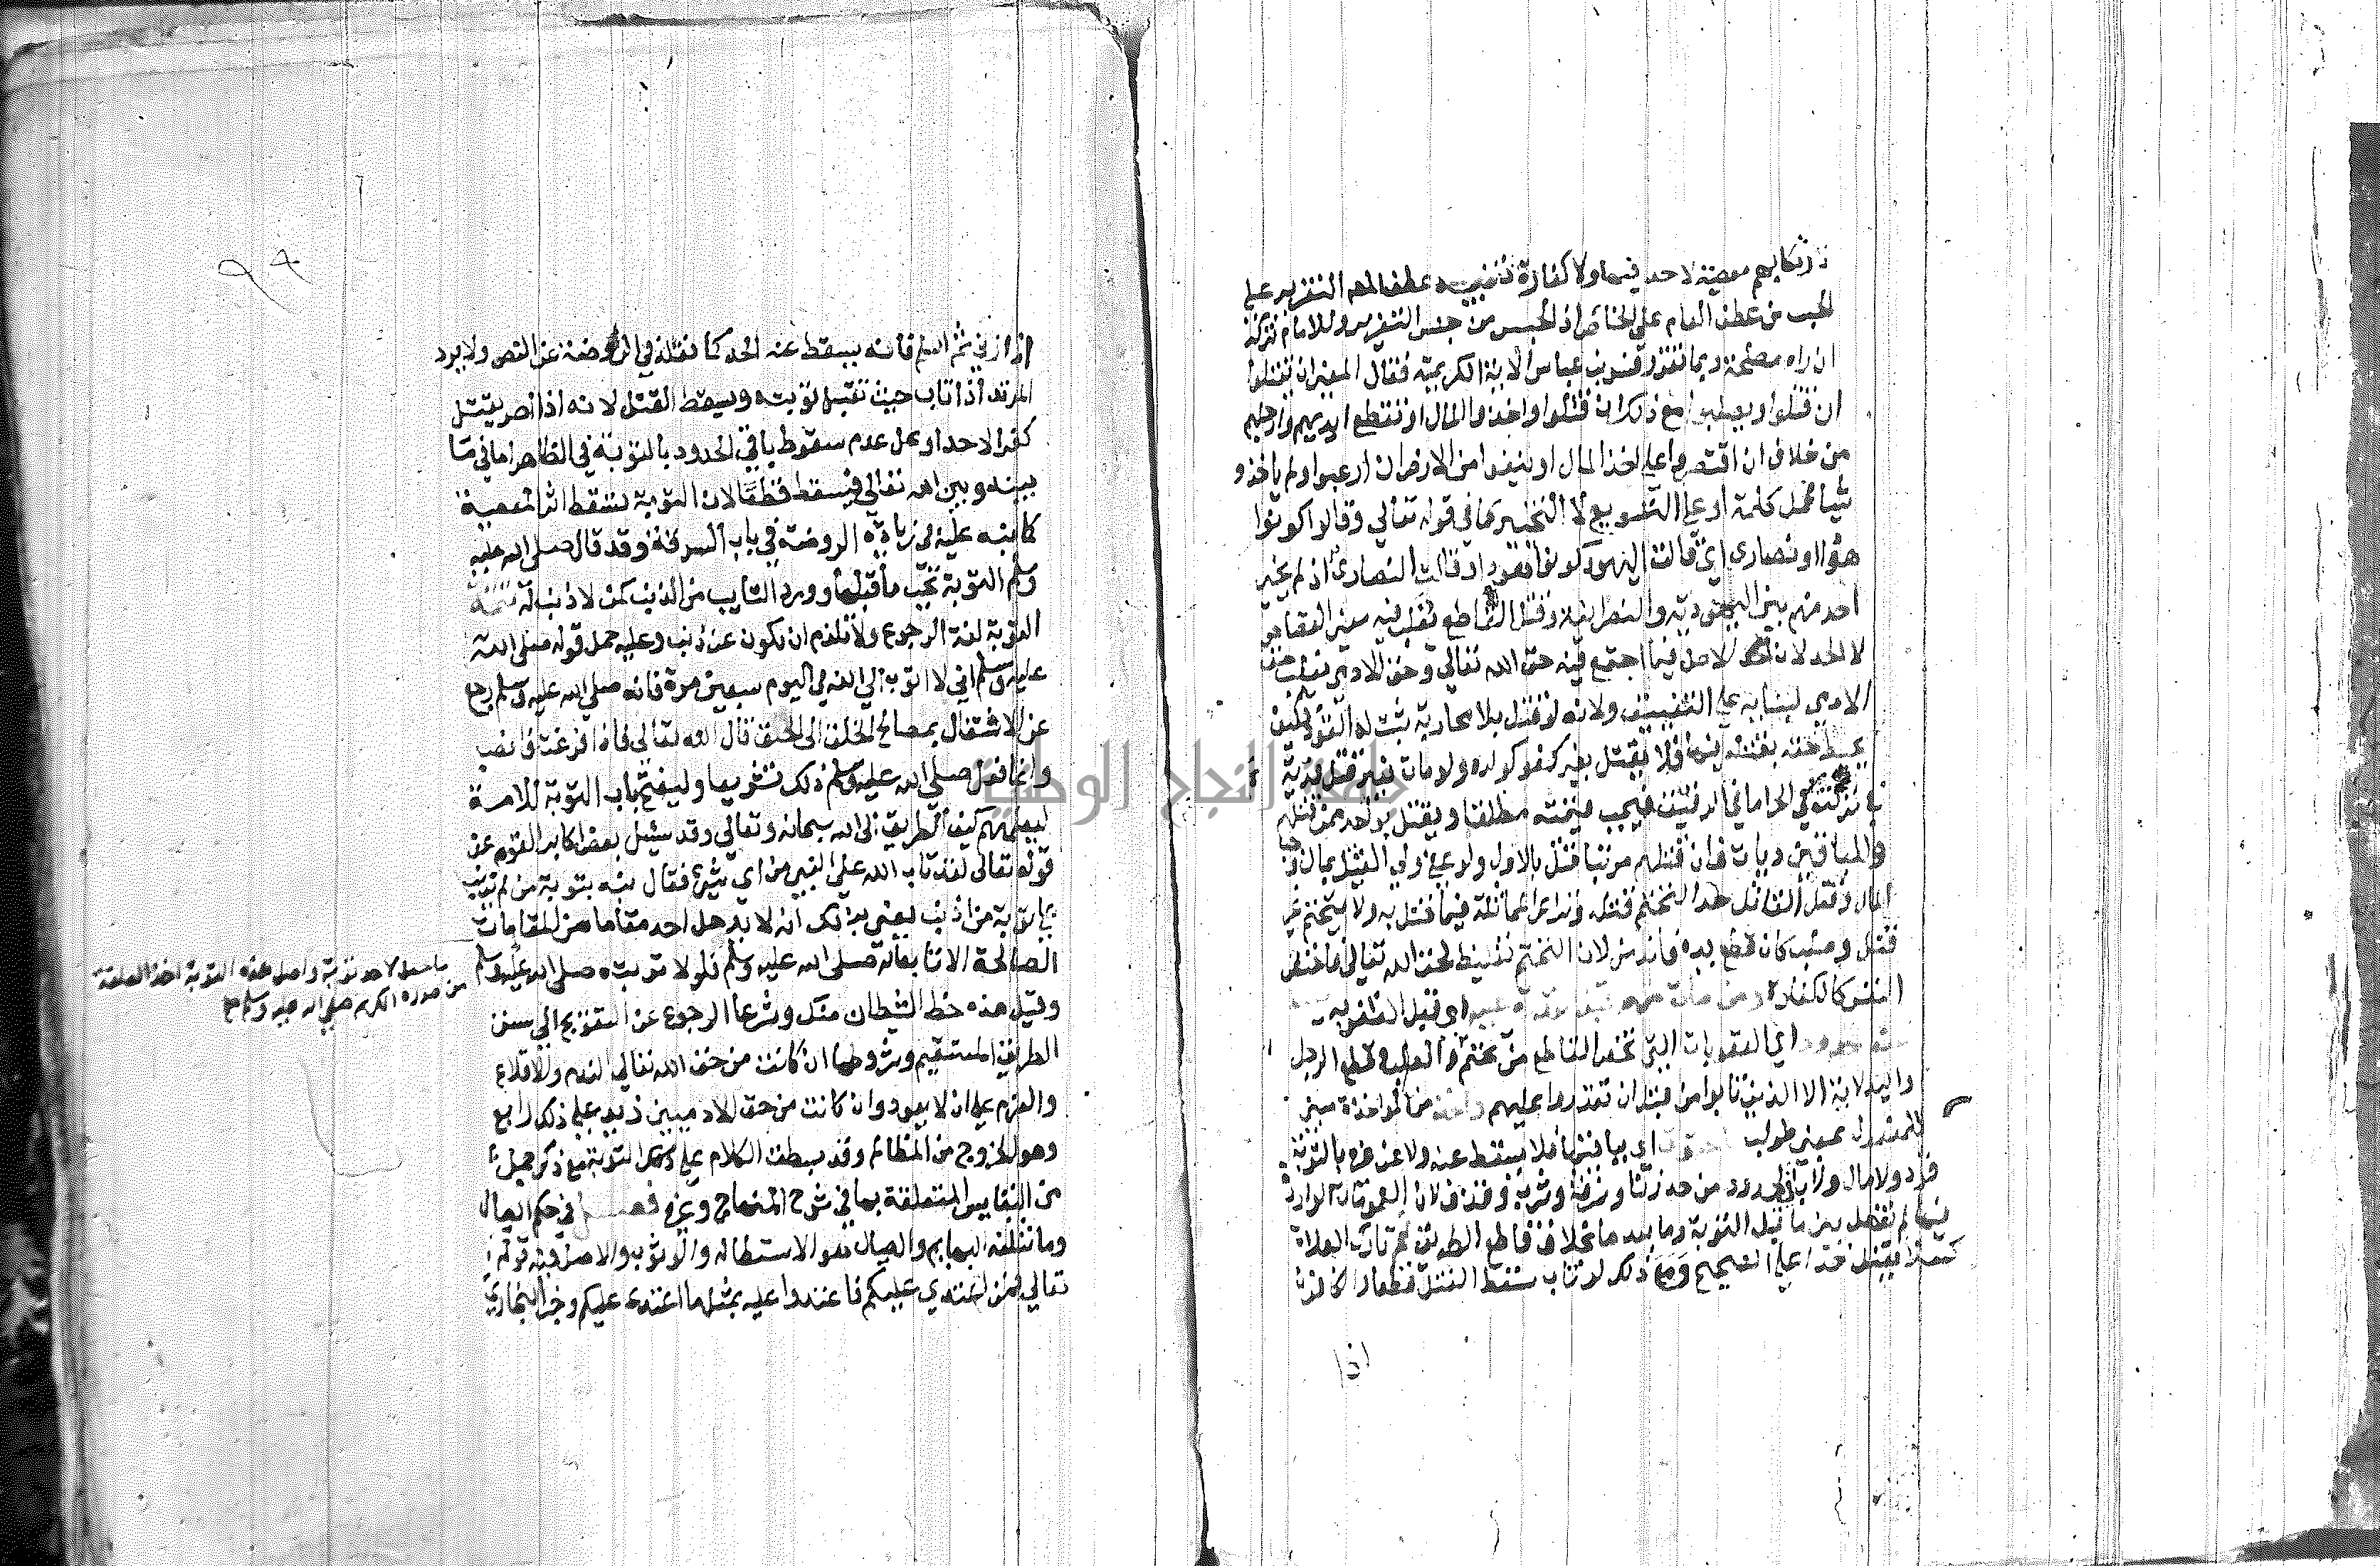 لارتكابهم معصية لا حد فيها ولا كفارة تنبيه عطف المصـ التعزير على
الحبس من عطف العام على الخاص اذ الحبس من جنس التعزير وللامام تركه
ان راه مصلحة وبما تقرر فسر بن عباس الاية الكريمة فقال المعنى ان يقتلوا
ان قتلوا ويصلبوا مع ذلك ان قتلوا واخذوا المال او تقطع ايديهم وارجلهم
من خلاف ان اقتصروا على اخذ المال او ينفوا من الارض ان ارعبوا ولم ياخذوا
شيأ فحمل كلمة او على التنويع لا التخيير كما في قوله تعالى وقالوا كونوا
هودا او نصارى اي قالت اليهود كونوا هودا وقالت النصارى اذ لم يخير
احد منهم بين اليهودية والنصرانية وقتل القاطع يغلب فيه معنى القصاص
لا الحد لان الاصل فيما اجتمع فيه حق الله تعالى وحق للادمي يغلب حق
الادمي لبنايه على التضييق ولانه لو قتل بلا محاربة ثبت له القود فكيف
يحبط حقه بقتله فيها فلا يقتل بغير كفو كولده ولو مات بغير قتل فدية
في تركته في الحر اما في الرقيق فيجب قيمته مطلقا ويقتل بواحد ممن قتلهم
وللباقين ديات فان قتلهم مرتبا قتل بالاول ولو عفى ولي القتيل بمال وجب
المال وقتل القاتل حدا لتحتم قتله وتراعى المماثلة فيما قتل به ولا يتحتم غير
قتل وصلب كان قطع يده فاندمل لان التحتم تغليظ لحق الله تعالى فاختص
النفس كالكفارة ومن تاب منهم قبل القدرة عليه اي قبل الظفر به
سقط الحدود اي العقوبات التي تخص القاطع من تحتم والصلب وقطع الرجل
واليد لاية الا الذين تابوا من قبل ان تقدروا عليهم واخذ من المواخذة مبني
للمفعول بمعنى طولب بالحقوق اي بباقيها فلا يسقط عنه ولا عن غيره بالتوبة
قود ولا مال ولا باقي الحدود من حد زنا وسرقة وشرب وقذف لان العمومات الواردة
فيها لم تفصل بين ما قبل التوبة وما بعدها بخلاف قاطع الطريق نعم تارك الصلاة
كسلا يقتل حدا على الصحيح ومع ذلك لو تاب سقط القتل قطعا والكافر
اذا
٩٩
اذا زنى ثم اسلم فانه يسقط عنه الحد كما نقله في الروضة عن النص ولا يرد
المرتد اذا تاب حيث تقبل توبته ويسقط القتل لانه اذا اصر يقتل
كفرا لا حدا ومحل عدم سقوط باقي الحدود بالتوبة في الظاهر اما في ما
بينه وبين الله تعالى فيسقط قطعا لان التوبة تسقط اثر المعصية
كما نبه عليه في زيادة الروضة في باب السرقة وقد قال صلى الله عليه
وسلم التوبة تجب ما قبلها وورد التايب من الذنب كمن لا ذنب له تتمة
التوبة لغة الرجوع ولا تلزم ان تكون عن ذنب وعليه حمل قوله صلى الله
عليه وسلم اني لا اتوب الى الله في اليوم سبعين مرة فانه صلى الله عليه وسلم رجع
عن الاشتغال بمصالح الخلق الى الحق قال الله تعالى فاذا فرغت فانصب
وانما فعل صلى الله عليه وسلم ذلك تشريعا وليفتح باب التوبة للامة
ليعلمهم كيف الطريق الى الله سبحانه وتعالى وقد سئيل بعض اكابر القوم عن
قوله تعالى لقد تاب الله على النبي من اي شيء فقال نبه بتوبة من لم يذنب
على توبة من اذنب يعني بذلك انه لا يدخل احد مقاما من المقامات
الصالحة الا تابعا له صلى الله عليه وسلم فلولا توبته صلى الله عليه وسلم
ما حصل لاحد توبة واصل هذه التوبة اخذ العلقة
من صدره الكريم صلى الله عليه وسلم صح
وقيل هذه حظ الشيطان منك وشرعا الرجوع عن التعويج الى سنن
الطريق المستقيم وشروطها ان كانت من حق الله تعالى الندم والاقلاع
والعزم على ان لا يعود وان كانت من حق الادميين زيد على ذلك رابع
وهو الخروج من المظالم وقد بسطت الكلام على ذكر التوبة مع ذكر جمل
من النفايس المتعلقة بها في شرح المنهاج وغيره فصـــل في حكم الصيال
وما تتلفه البهايم والصيال هو الاستطالة والوثوب والاصل فيه قوله
تعالى فمن اعتدي عليكم فاعتدوا عليه بمثل ما اعتدى عليكم وخبر البخاري
جامعة النجاح الوطنية